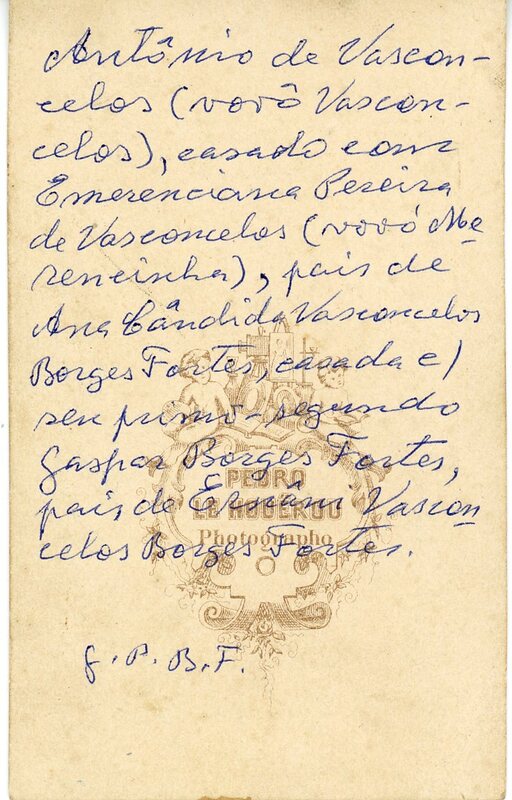 Antônio de Vascon-
celos (vovô Vascon-
celos), casado com
Emerenciana Pereira
de Vasconcelos (vovó Me
rencinha), pais de
Ana Cândida Vasconcelos
Borges Fortes, casada c/
seu primo-segundo
Gaspar Borges Fortes,
pais de Ernâni Vascon
celos Borges Fortes.
PEDRO
Photographo
G.P.B.F.